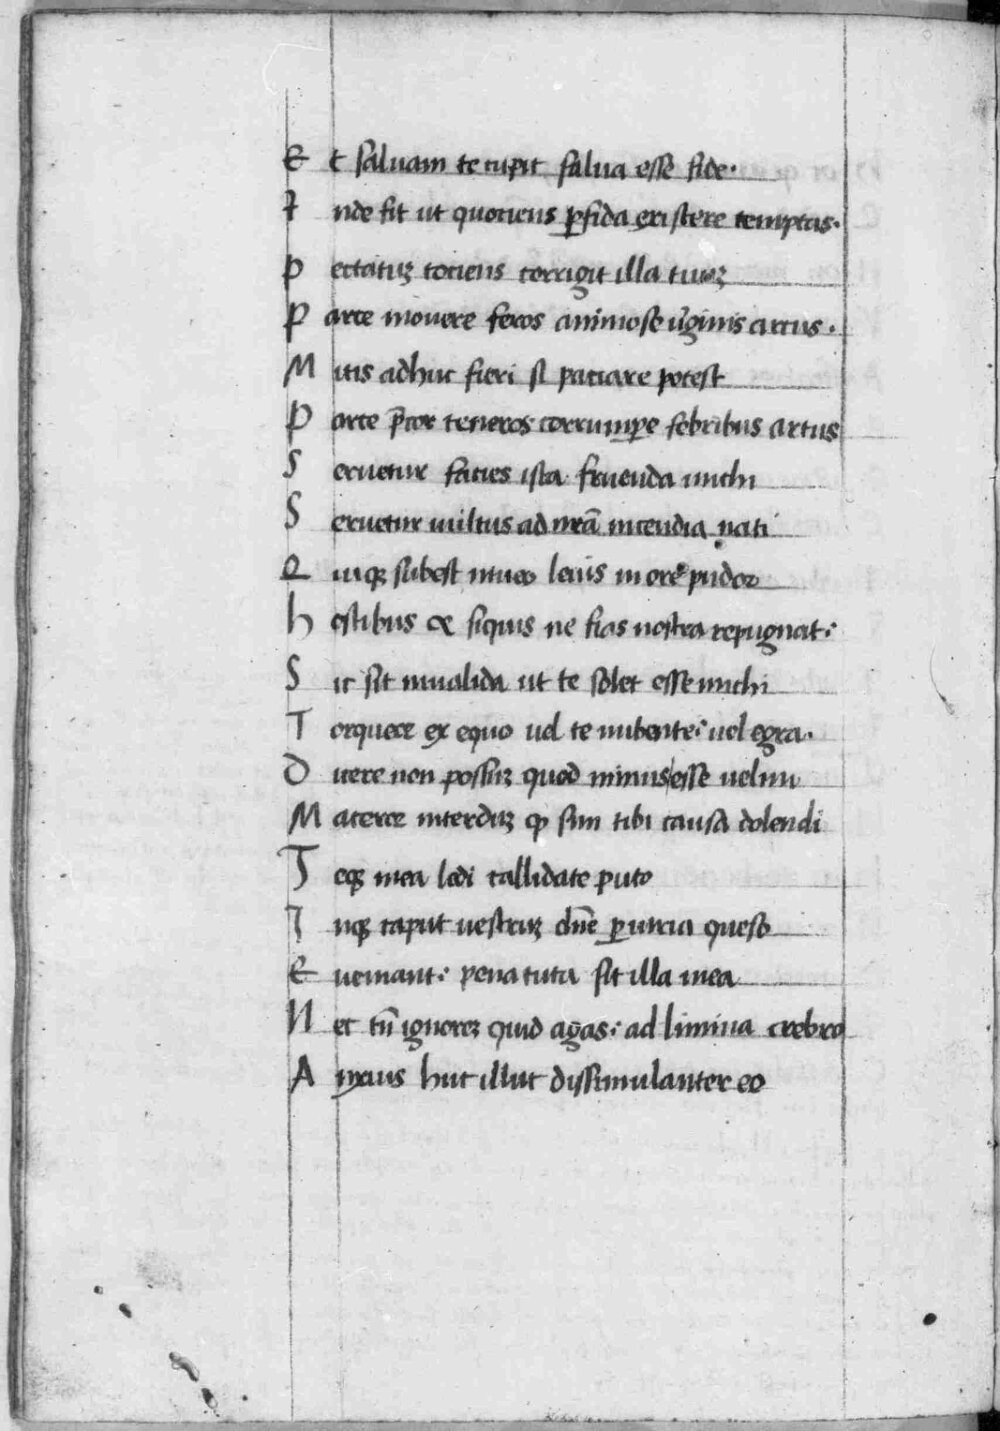 Et saluam te cupit salua esse fide·
Inde fit ut quotiens ꝑfida existere temptas·
Pectatuꝫ totiens corrigit illa tuuꝫ
Parce mouere feros animose uginis arcus·
Mitis adhuc fieri si patiare potest
Parce p̄cor teneros corrumpe febribus artus
Seruetur facies ista fruenda michi
Seruetur uultus ad nr̄a incendia nati
Quiqꝫ subest niueo leuis in ore pudor
hostibus & siquis ne fias nostra repugnat·
Sic sit inualida ut te solet esse michi
Torqueor ex equo uel te nubente· uel egra·
Dicere non possuꝫ quod minus esse uelim
Maceror interduꝫ ꝙ sim tibi causa dolendi
Teqꝫ mea ledi calliditate puto
Inqꝫ caput uestruꝫ dn̄e ꝑiuria queso
Eueniant· pena tuta sit illa mea
Nec tn̄ ignorem quid agas· ad limina crebro
Anxius huc illuc dissimulanter eo